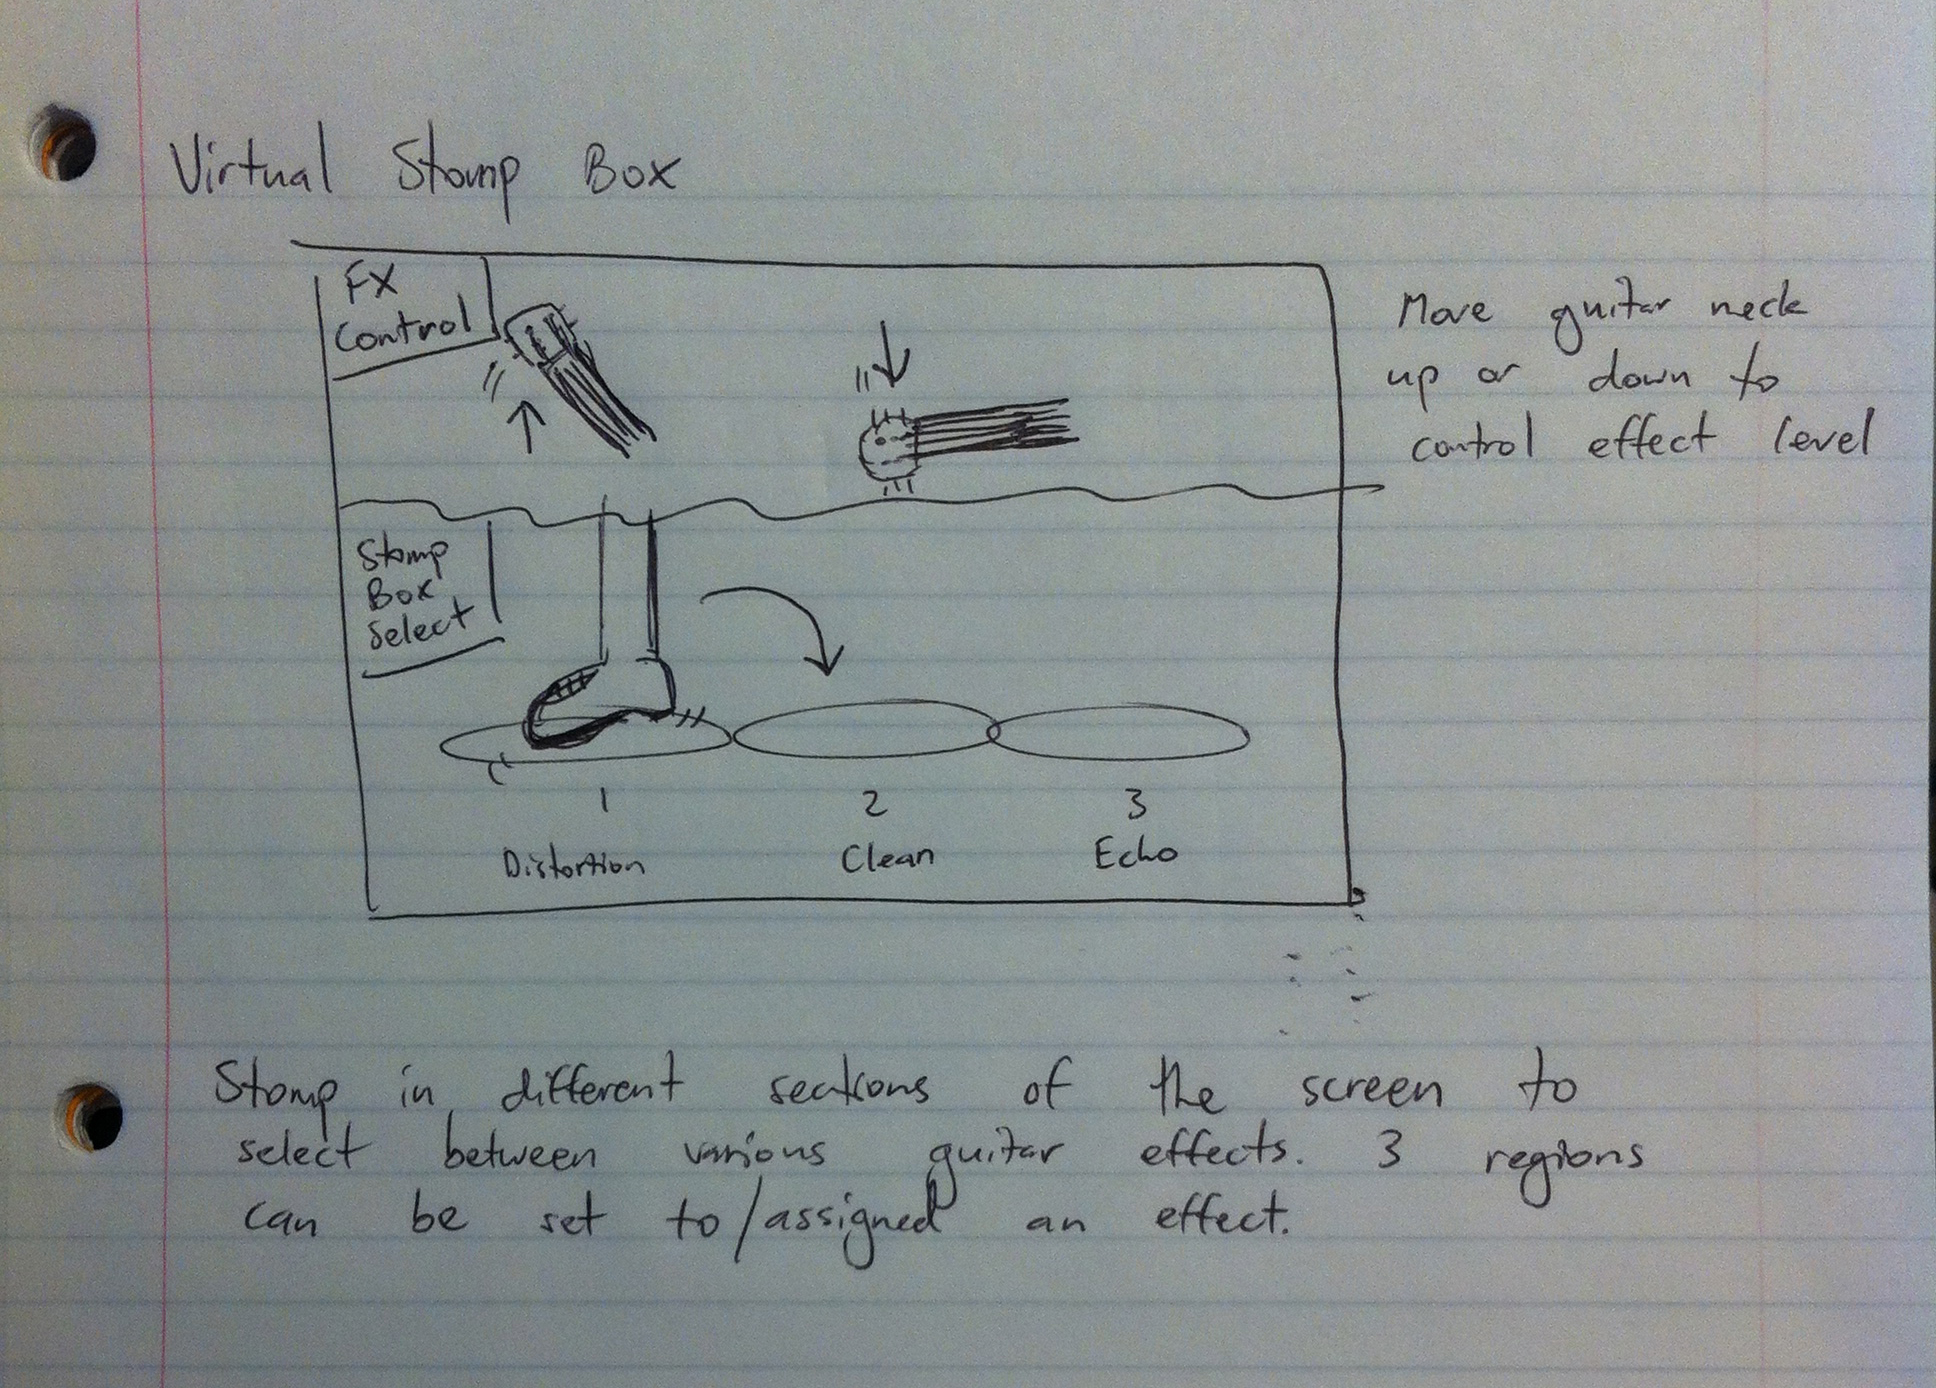 Virtual Stomp Box
FX
Control
Move guitar neck
up or down to
control effect level
Stomp
Box
Select
1
2
3
Distortion
Clean
Echo
Stomp in different sections of the screen to
select between various guitar effects. 3 regions
can be set to/assigned an effect.